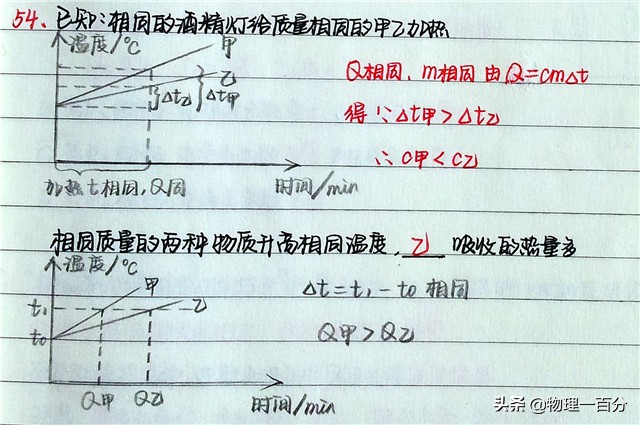 54. 已知：相同的酒精灯给质量相同的甲乙加热
温度/℃
甲
乙
Δt乙 Δt甲
Q相同、m相同 由Q=cmΔt
得∵Δt甲>Δt乙
∴c甲<c乙
加热t相同,Q同
时间/min
相同质量的两种物质升高相同温度，乙 吸收的热量多
温度/℃
甲
t₁
乙
t₀
Δt=t₁-t₀ 相同
Q甲>Q乙
Q甲 Q乙
时间/min
头条 @物理一百分